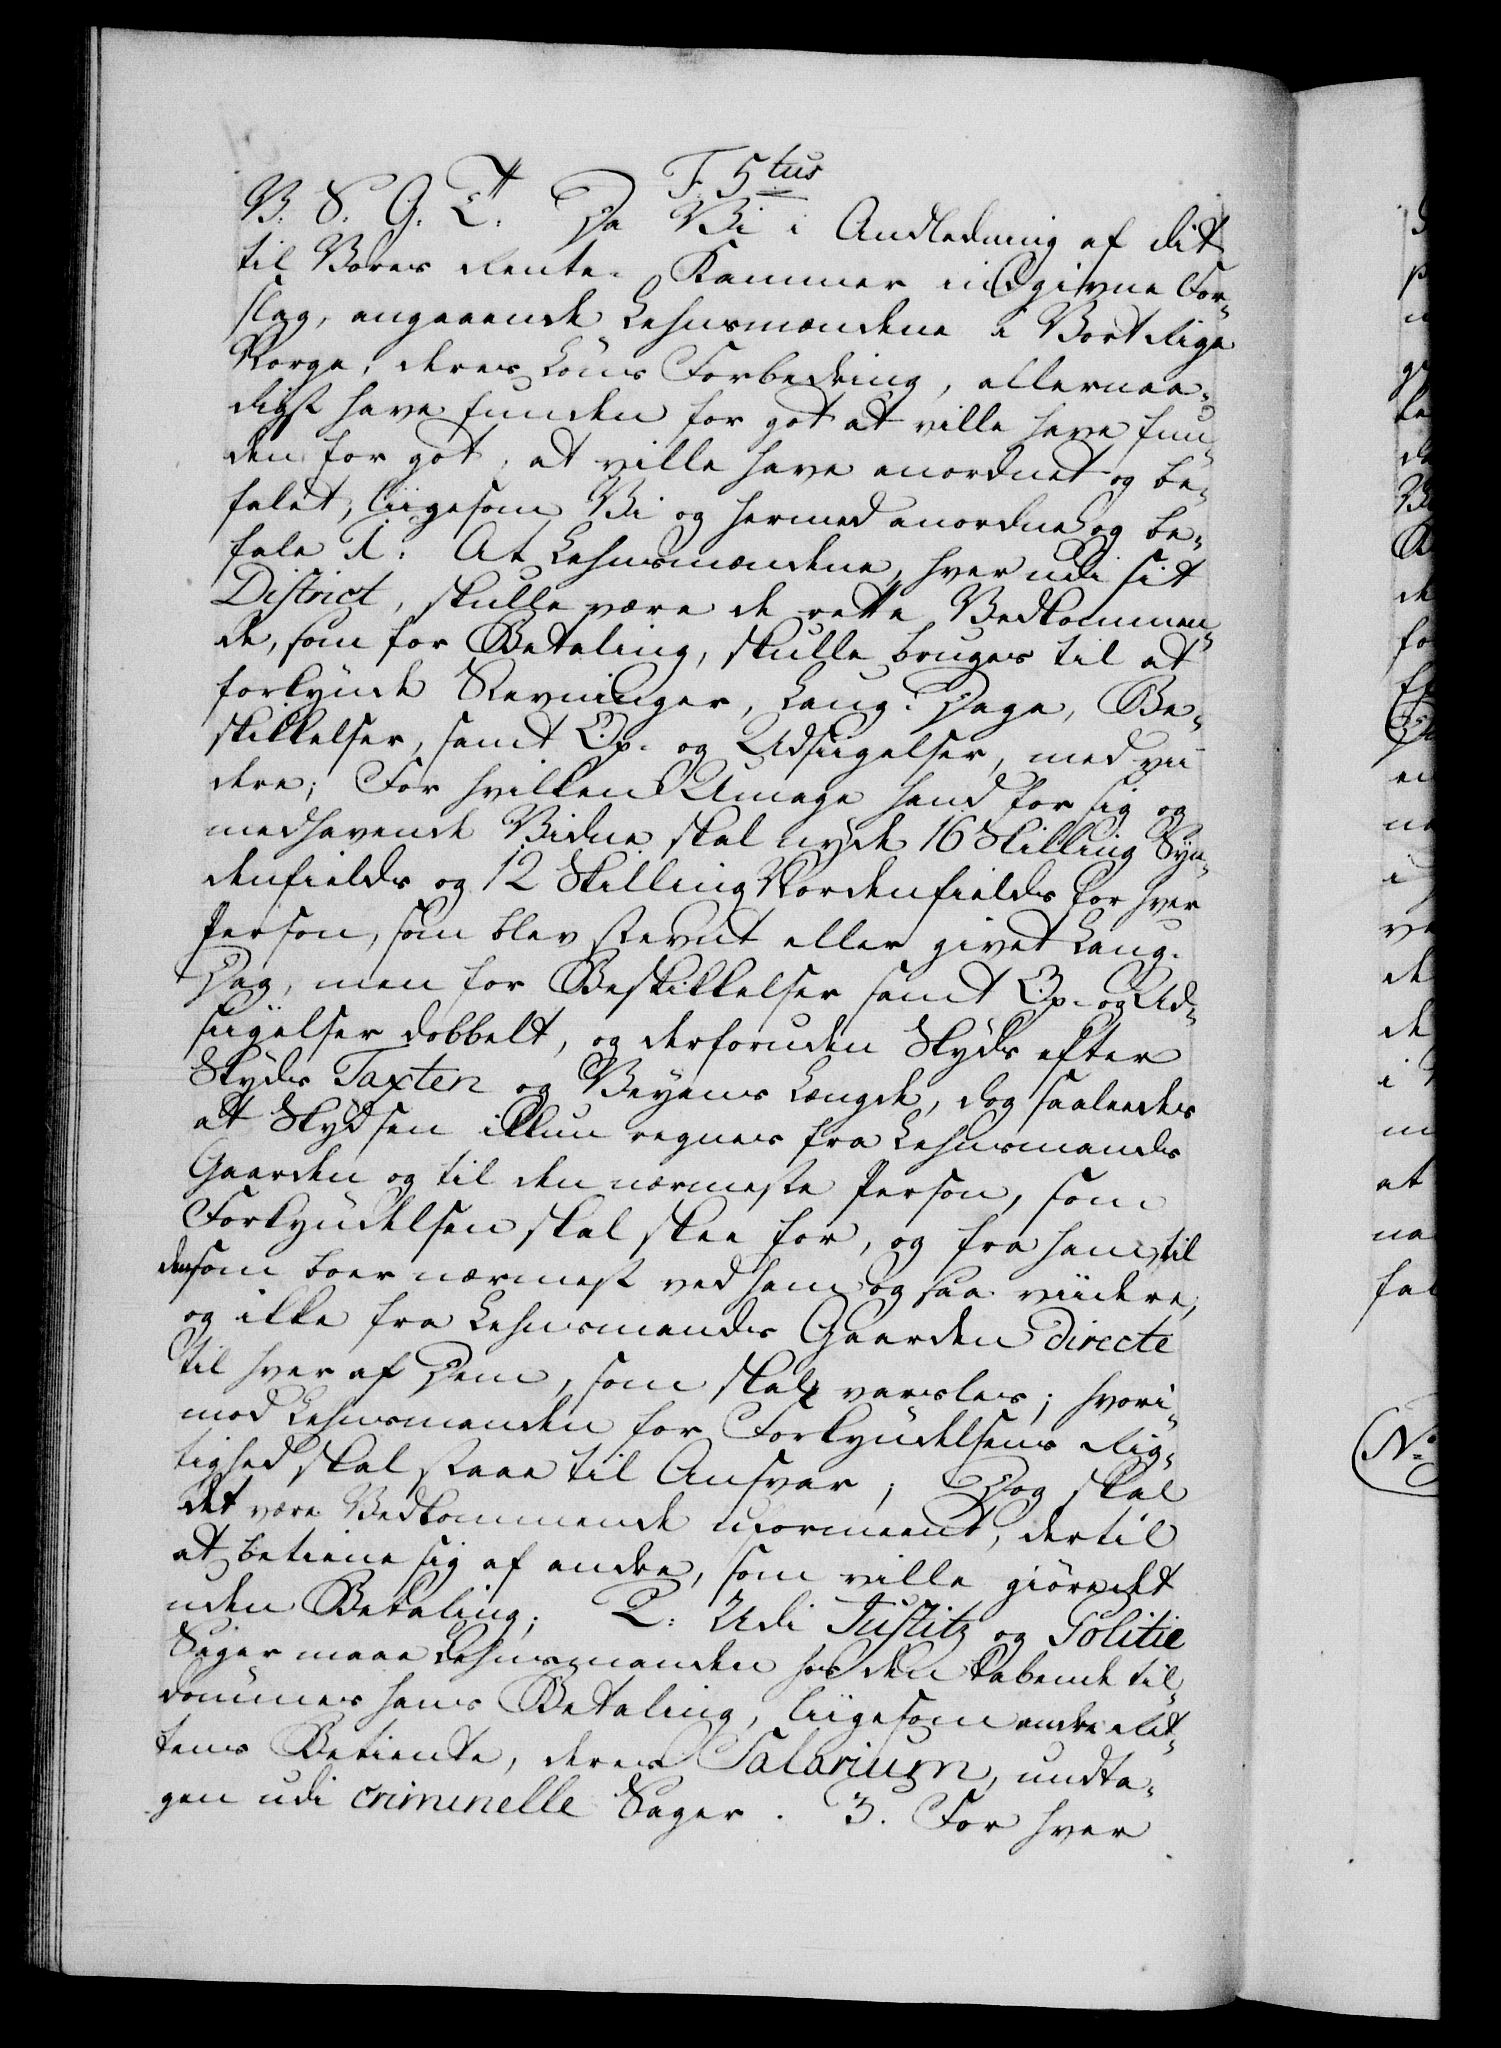 F. 5tus
V. S. G. T. Da Vi i Andledning af dit
til Vores Rente-Kammer indgivne For-
slag, angaaende Lehnsmændene i Vort Rige
Norge, deres Löns Forbedring, allernaa-
digst have funden for got at ville have fun-
den for got, at ville have anordnet og be-
falet, liigesom Vi og hermed anordne og be-
fale 1: At Lehnsmændene, hver udi sit
District, skulle være de rette Vedkommen-
de, som for Betaling, skulle bruges til at
forkynde Stevninger, Laug-Dage, Be-
skikkelser, samt Op- og Udsiigelser, med vii-
dere; For hvilken Umage hand for sig og
medhavende Vidne skal nyde 16 Skilling Syn-
denfields og 12 Skilling Nordenfields for hver
Person, som blev stevnt eller givet Laug-
Dag, men for Beskikkelser samt Op- og Ud-
siigelser dobbelt, og derforuden Skyds efter
Skyds Taxten og Veyens Længde, dog saaledes
at Skydsen ikkun regnes fra Lehnsmands
Gaarden og til den nærmeste Person, som
Forkyndelsen skal skee for, og fra ham til
den som boer nærmest ved ham og saa viidere,
og ikke fra Lehnsmands Gaarden directe
til hver af Dem, som skal varsles; hvori-
mod Lehnsmanden for Forkyndelsens Rig-
tighed skal staae til Ansvar; Dog skal
det være Vedkommende uformeent, dertil
at betiene sig af andre, som ville giöre det
uden Betaling; 2: Udi Justitz og Politie
Sager maae Lehnsmanden hos den tabende til-
dömmes hans Betaling, liigesom andre Ret-
tens Betiente, deres Salarium, undta-
gen udi criminelle Sager. 3. For hver